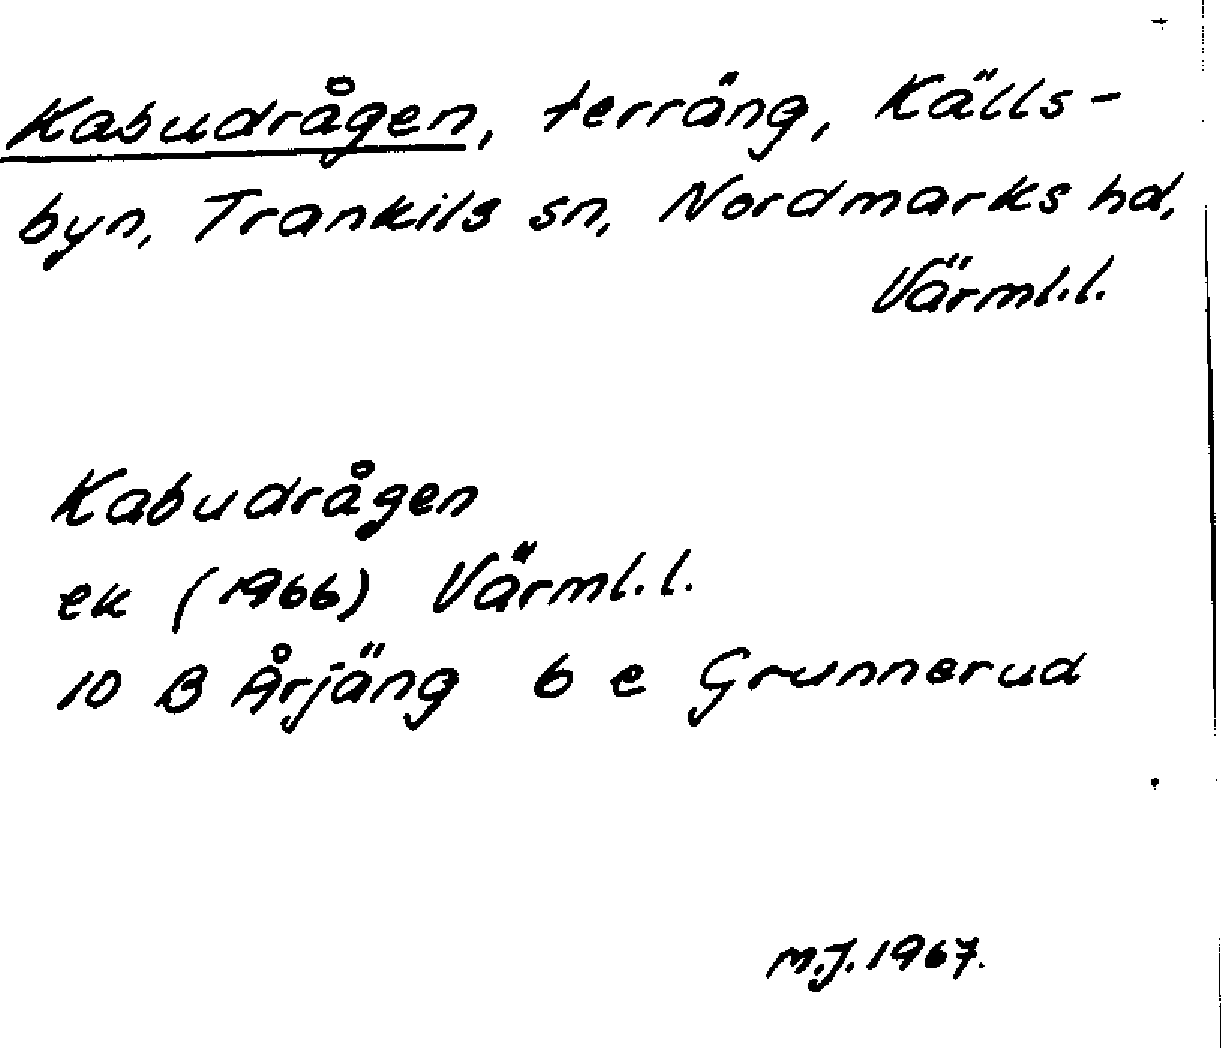 Kabudrågen, terräng, Källs-
byn, Trankils sn, Nordmarks hd,
Värml.l.
Kabudrågen
ek (1966) Värml.l.
10 B Årjäng 6 e Grunnerud
M.J. 1967.